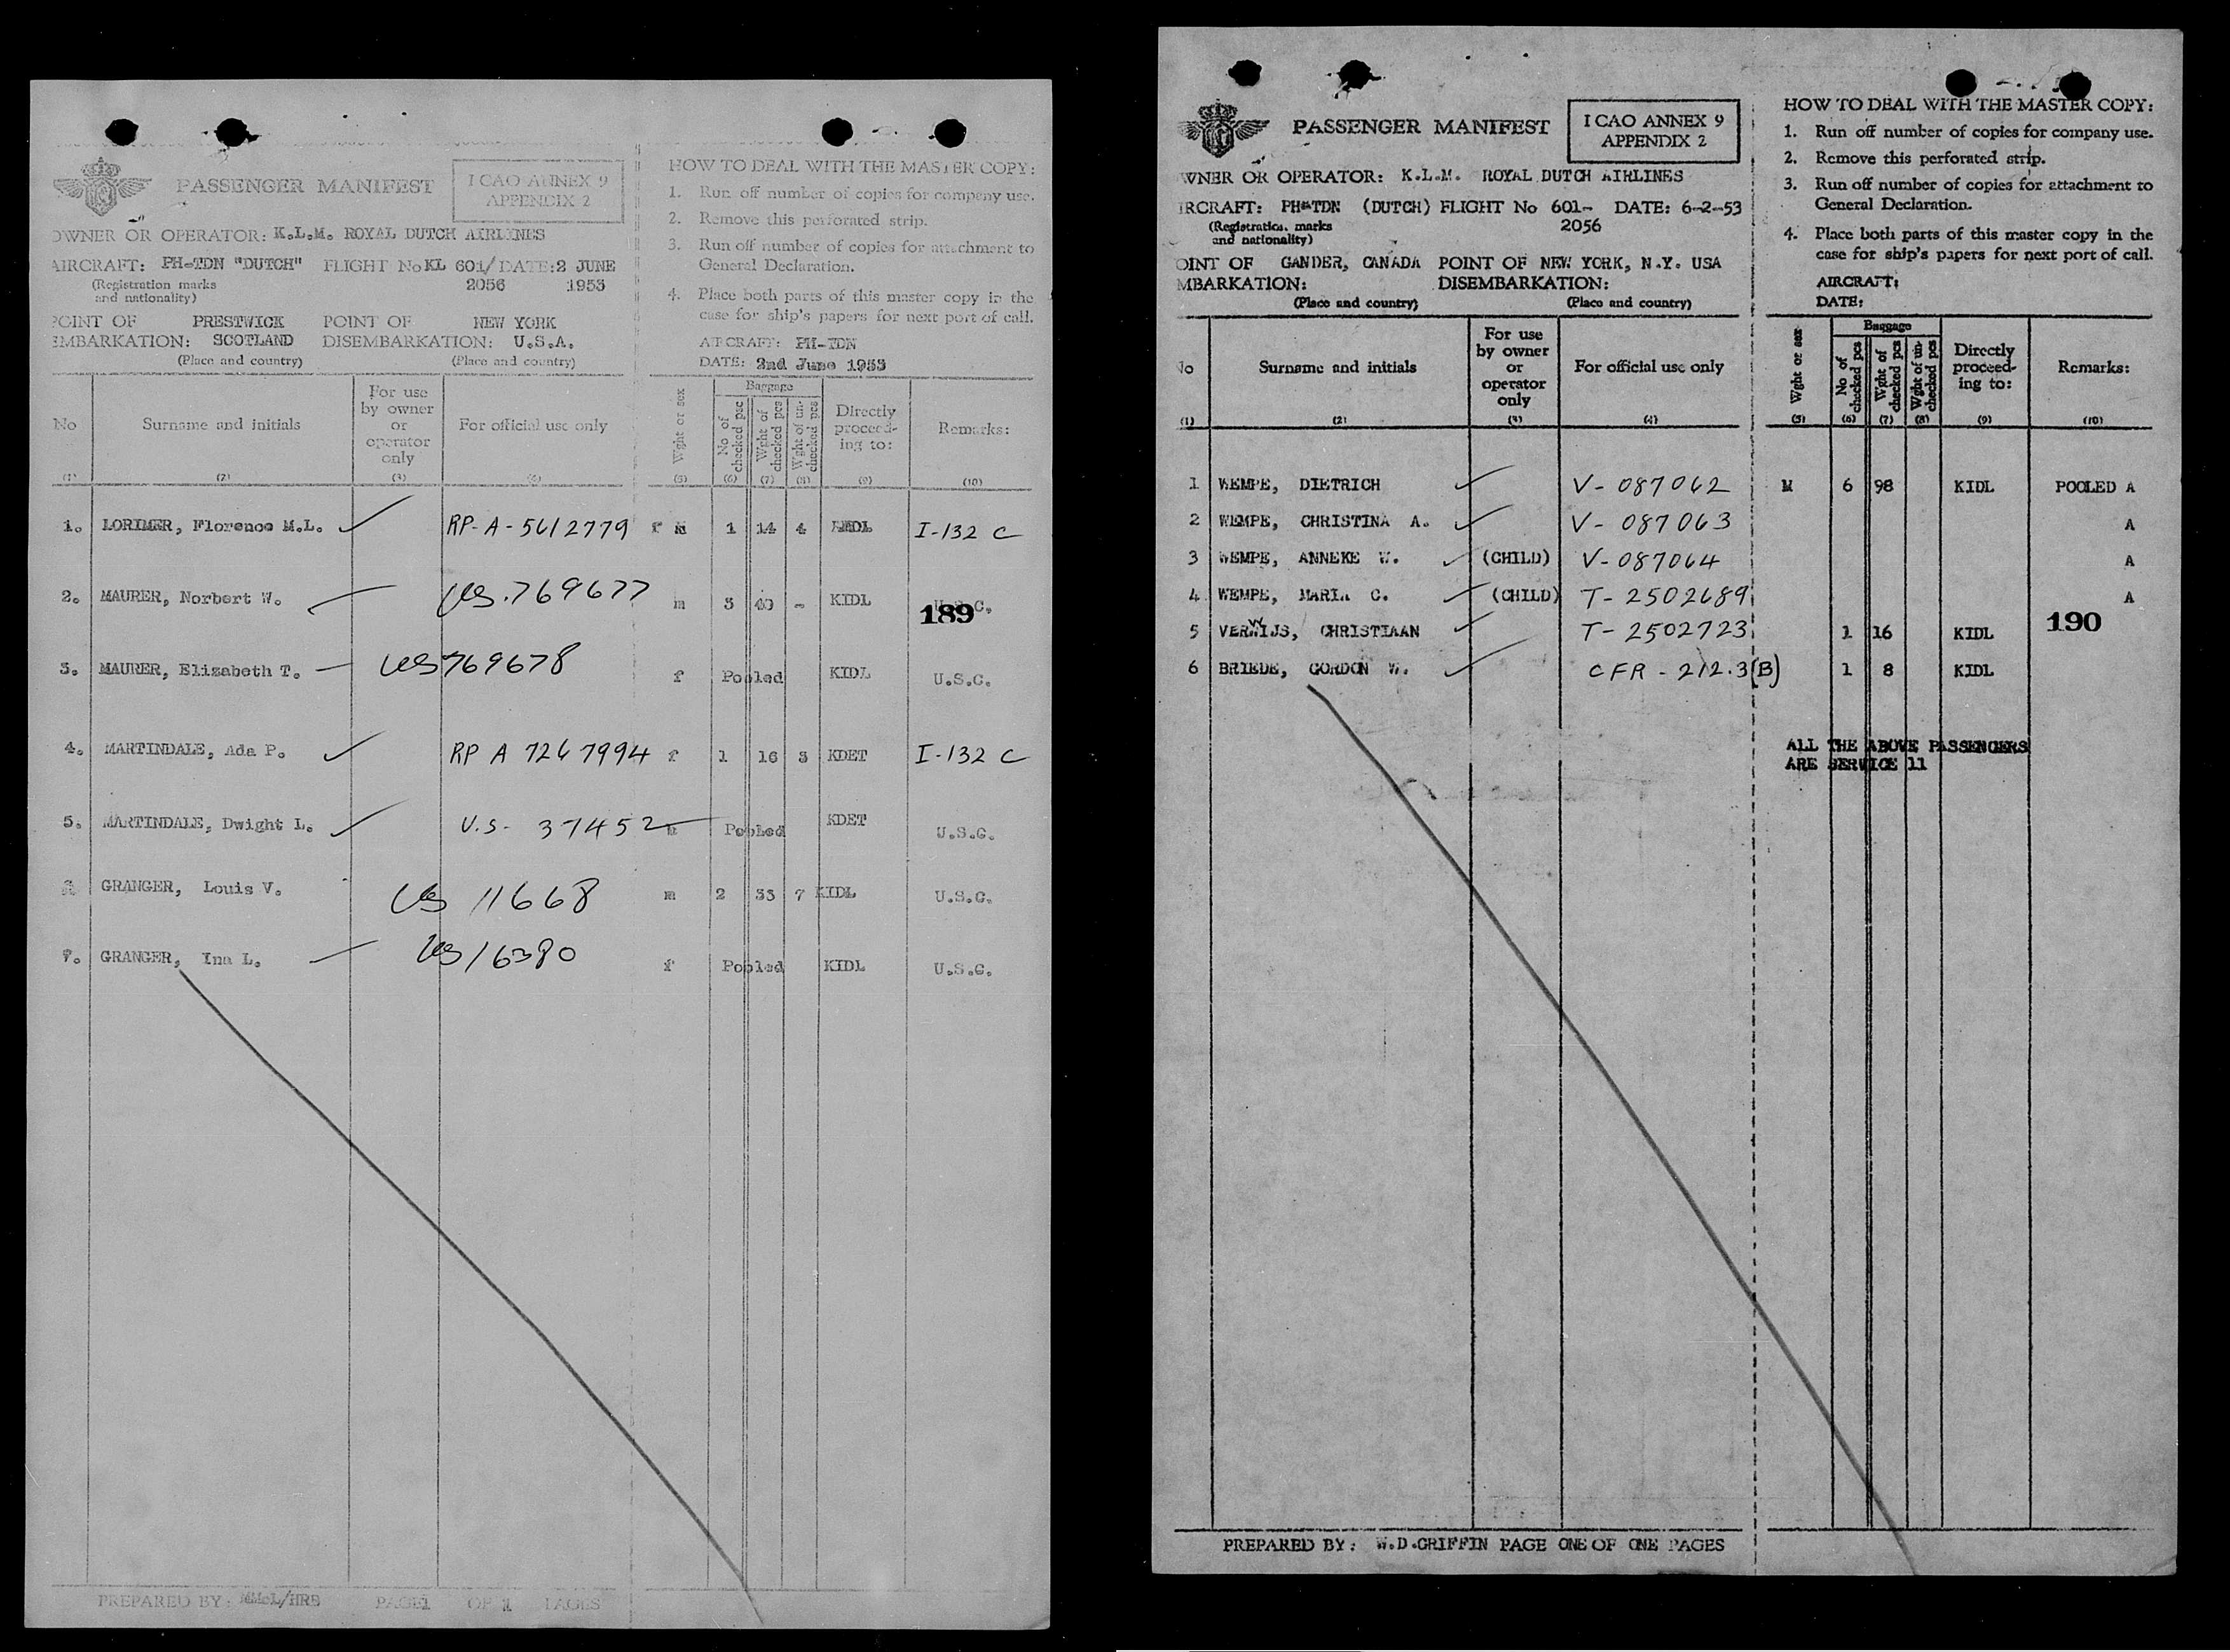 PASSENGER MANIFEST
I CAO ANNEX 9
APPENDIX 2
OWNER OR OPERATOR: K.L.M. ROYAL DUTCH AIRLINES
AIRCRAFT: PH-TDN "DUTCH" FLIGHT No KL 601/ DATE: 2 JUNE
(Registration marks 2056 1953
and nationality)
POINT OF PRESTWICK POINT OF NEW YORK
EMBARKATION: SCOTLAND DISEMBARKATION: U.S.A.
(Place and country) (Place and country)
HOW TO DEAL WITH THE MASTER COPY:
1. Run off number of copies for company use.
2. Remove this perforated strip.
3. Run off number of copies for attachment to
General Declaration.
4. Place both parts of this master copy in the
case for ship's papers for next port of call.
AIRCRAFT: PH-TDN
DATE: 2nd June 1953
No Surname and initials For use by owner or operator only For official use only Wght or sex Baggage No of checked psc Wght of checked pcs Wght of un-checked pcs Directly proceed-ing to: Remarks:
(1) (2) (3) (4) (5) (6) (7) (8) (9) (10)
1. LORIMER, Florence M.L. RP-A-5612779 f 1 14 4 I-132 C
2. MAURER, Norbert W. US.769677 m 3 40 - KIDL U.S.C.
189
3. MAURER, Elizabeth T. US769678 f Pooled KIDL U.S.C.
4. MARTINDALE, Ada P. RP A 7267994 f 1 16 3 KDET I-132 C
5. MARTINDALE, Dwight L. U.S- 37452 m Pooled KDET U.S.C.
GRANGER, Louis V. US 11668 m 2 33 7 KIDL U.S.C.
7. GRANGER, Ina L. US 16380 f Pooled KIDL U.S.C.
PREPARED BY: PAGE 1 OF 1 PAGES
PASSENGER MANIFEST
I CAO ANNEX 9
APPENDIX 2
WNER OR OPERATOR: K.L.M. ROYAL DUTCH AIRLINES
IRCRAFT: PH-TDN (DUTCH) FLIGHT No 601- DATE: 6-2-53
(Registration marks 2056
and nationality)
OINT OF GANDER, CANADA POINT OF NEW YORK, N.Y. USA
MBARKATION: DISEMBARKATION:
(Place and country) (Place and country)
HOW TO DEAL WITH THE MASTER COPY:
1. Run off number of copies for company use.
2. Remove this perforated strip.
3. Run off number of copies for attachment to
General Declaration.
4. Place both parts of this master copy in the
case for ship's papers for next port of call.
AIRCRAFT:
DATE:
No Surname and initials For use by owner or operator only For official use only Wght or sex Baggage No of checked pcs Wght of checked pcs Wght of un-checked pcs Directly proceed-ing to: Remarks:
(1) (2) (3) (4) (5) (6) (7) (8) (9) (10)
1 WEMPE, DIETRICH V- 087062 M 6 98 KIDL POOLED A
2 WEMPE, CHRISTINA A. V- 087063 A
3 WEMPE, ANNEKE W. (CHILD) V-087064 A
4 WEMPE, MARIA C. (CHILD) T-2502689 A
5 VERWIJS, CHRISTIAAN T-2502723 1 16 KIDL
190
6 BRIEDE, GORDON W. CFR - 212.3(B) 1 8 KIDL
ALL THE ABOVE PASSENGERS
ARE SERVICE 11
PREPARED BY: W.D.GRIFFIN PAGE ONE OF ONE PAGES